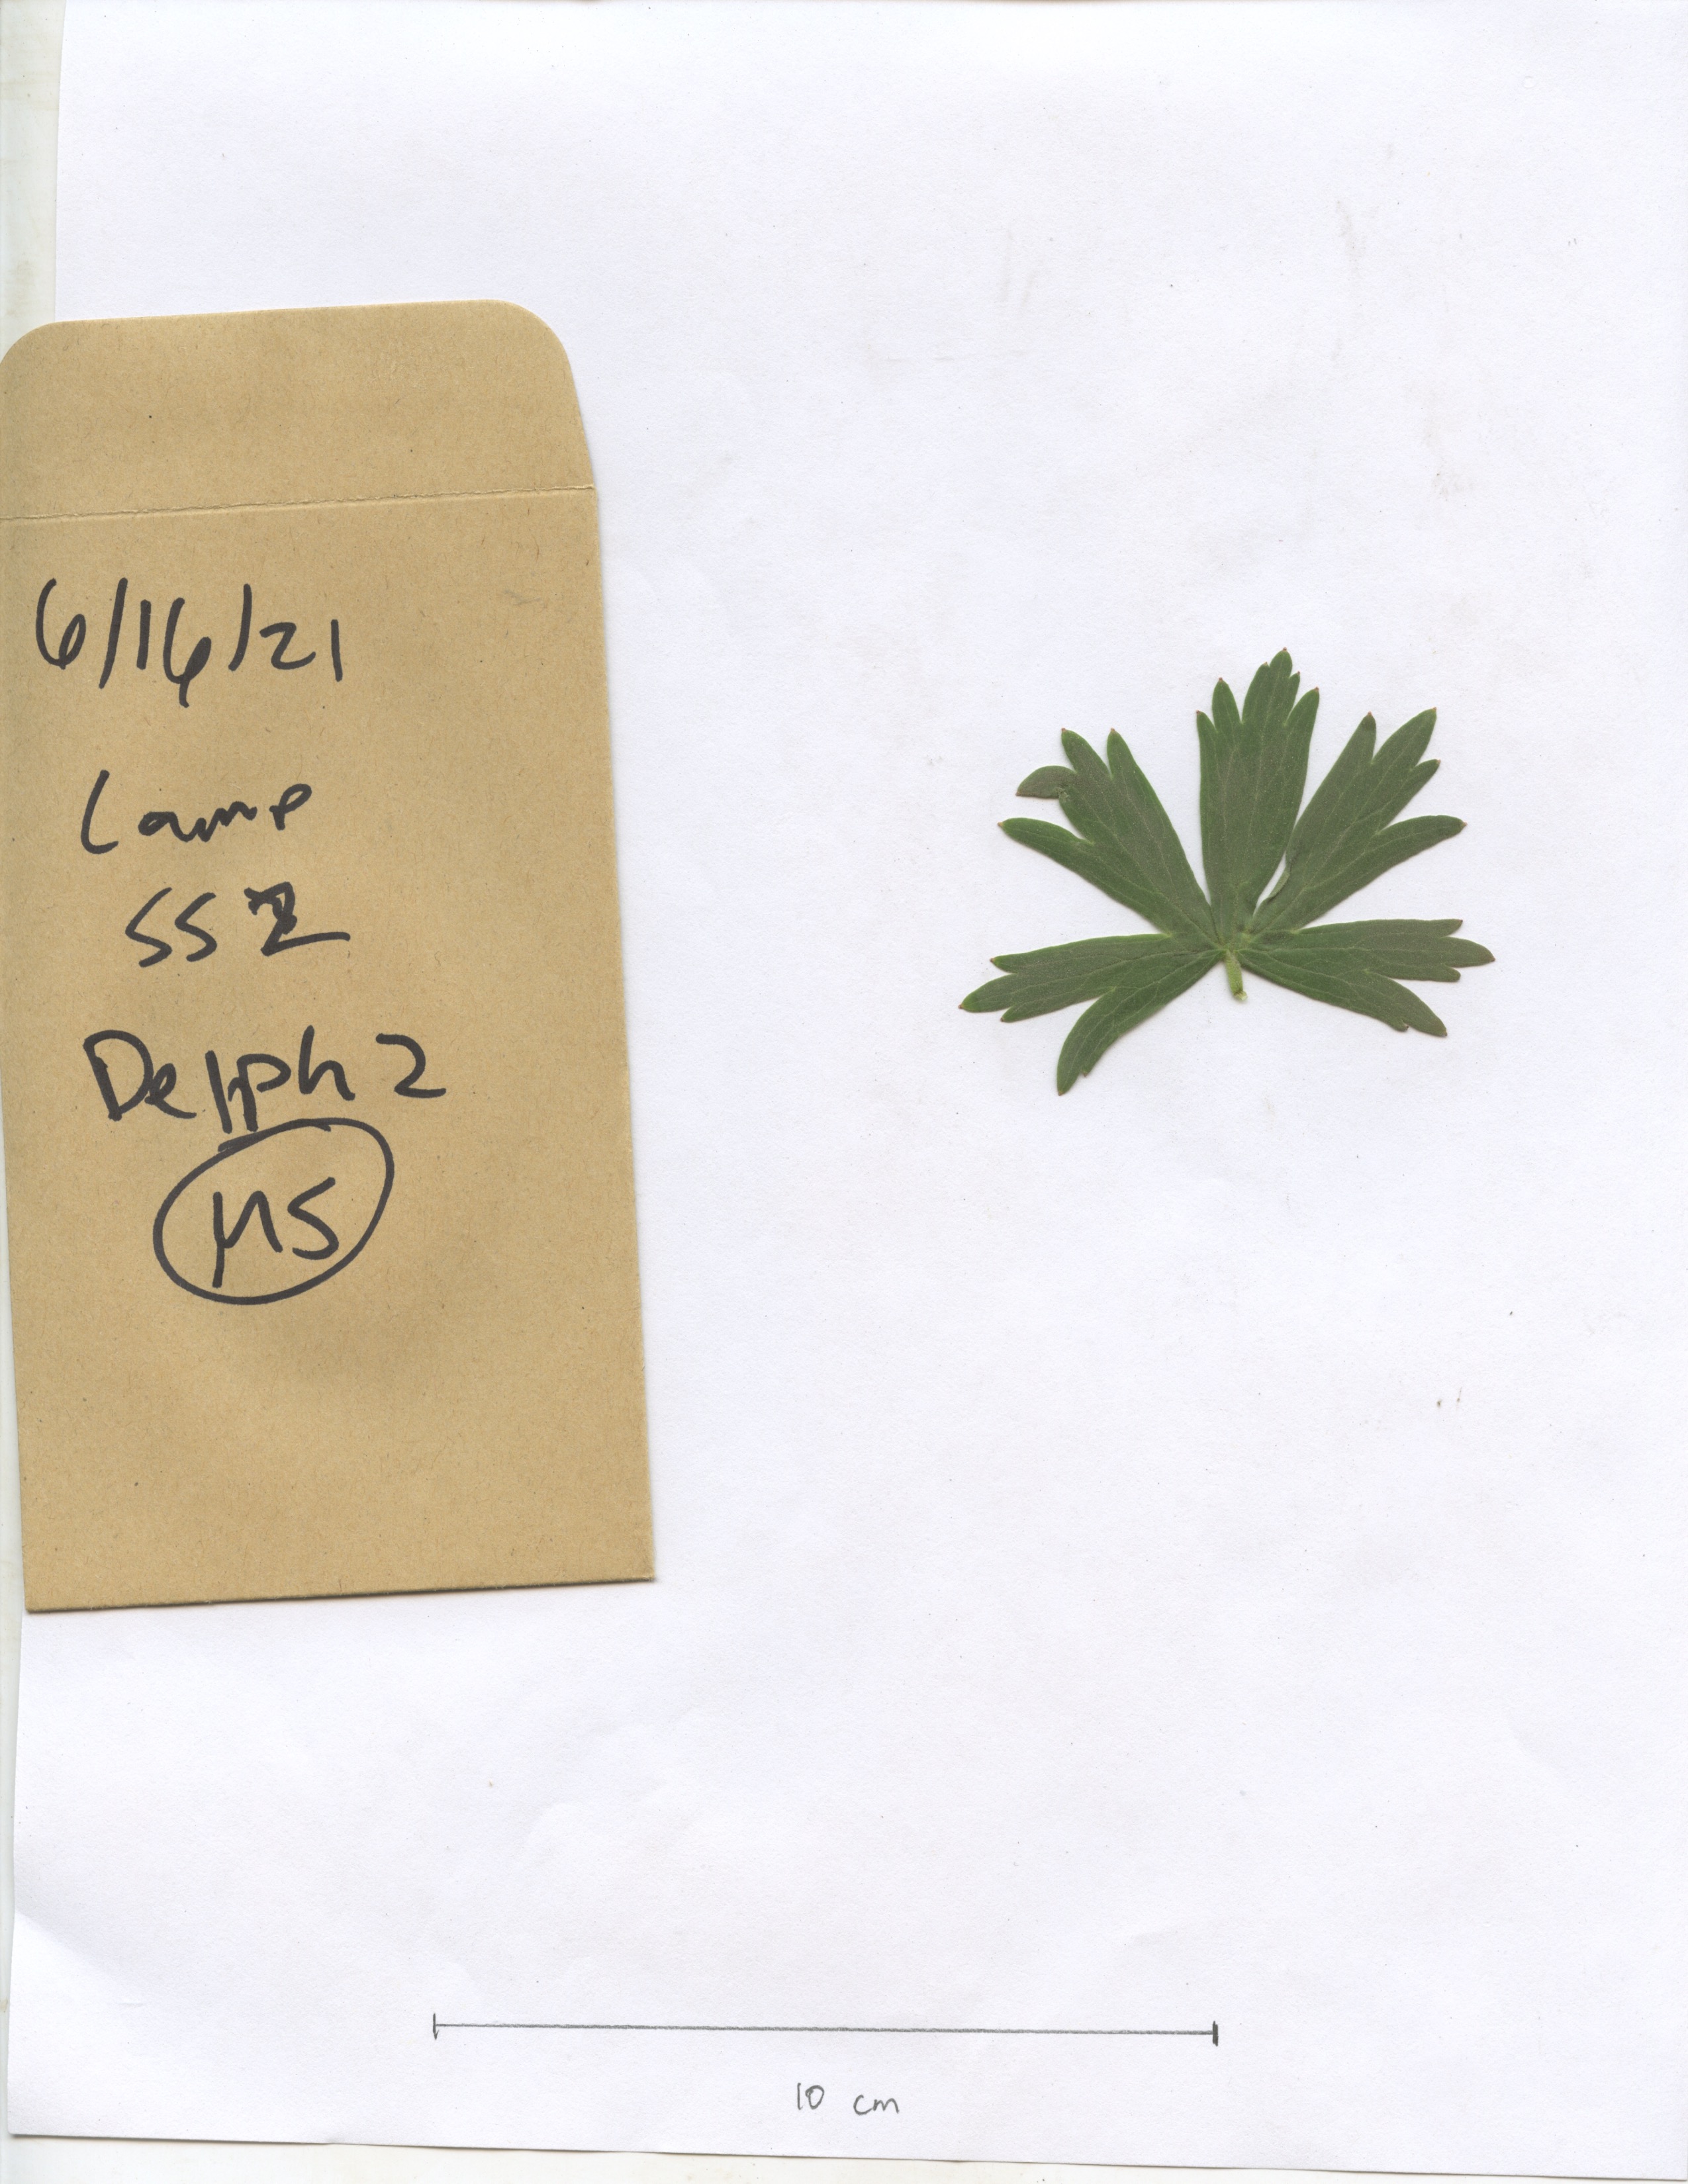 6/16/21
Camp
SS 2
Delph 2
MS
10 cm